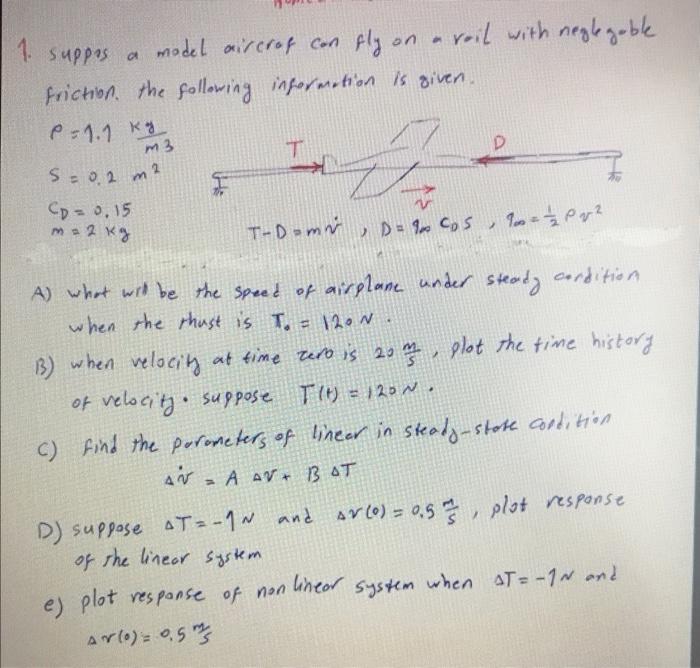 1. suppos a model aircraf can fly on a rail with neglegable
friction. the following information is given.
ρ = 1.1 kg/m3
S = 0.2 m²
CD = 0.15
m = 2 kg
T
D
v
T-D = mv̇ , D = q∞ CD S , q∞ = ½ ρ v²
A) what will be the speed of airplane under steady condition
when the thust is T₀ = 120 N .
B) when velocity at time zero is 20 m/s , plot the time history
of velocity. suppose T(t) = 120 N .
C) find the parameters of linear in steady-state condition
Δv̇ = A Δv + B ΔT
D) suppose ΔT = -1 N and Δv(0) = 0.5 m/s , plot response
of the linear system
e) plot response of non linear system when ΔT = -1 N and
Δv(0) = 0.5 m/s